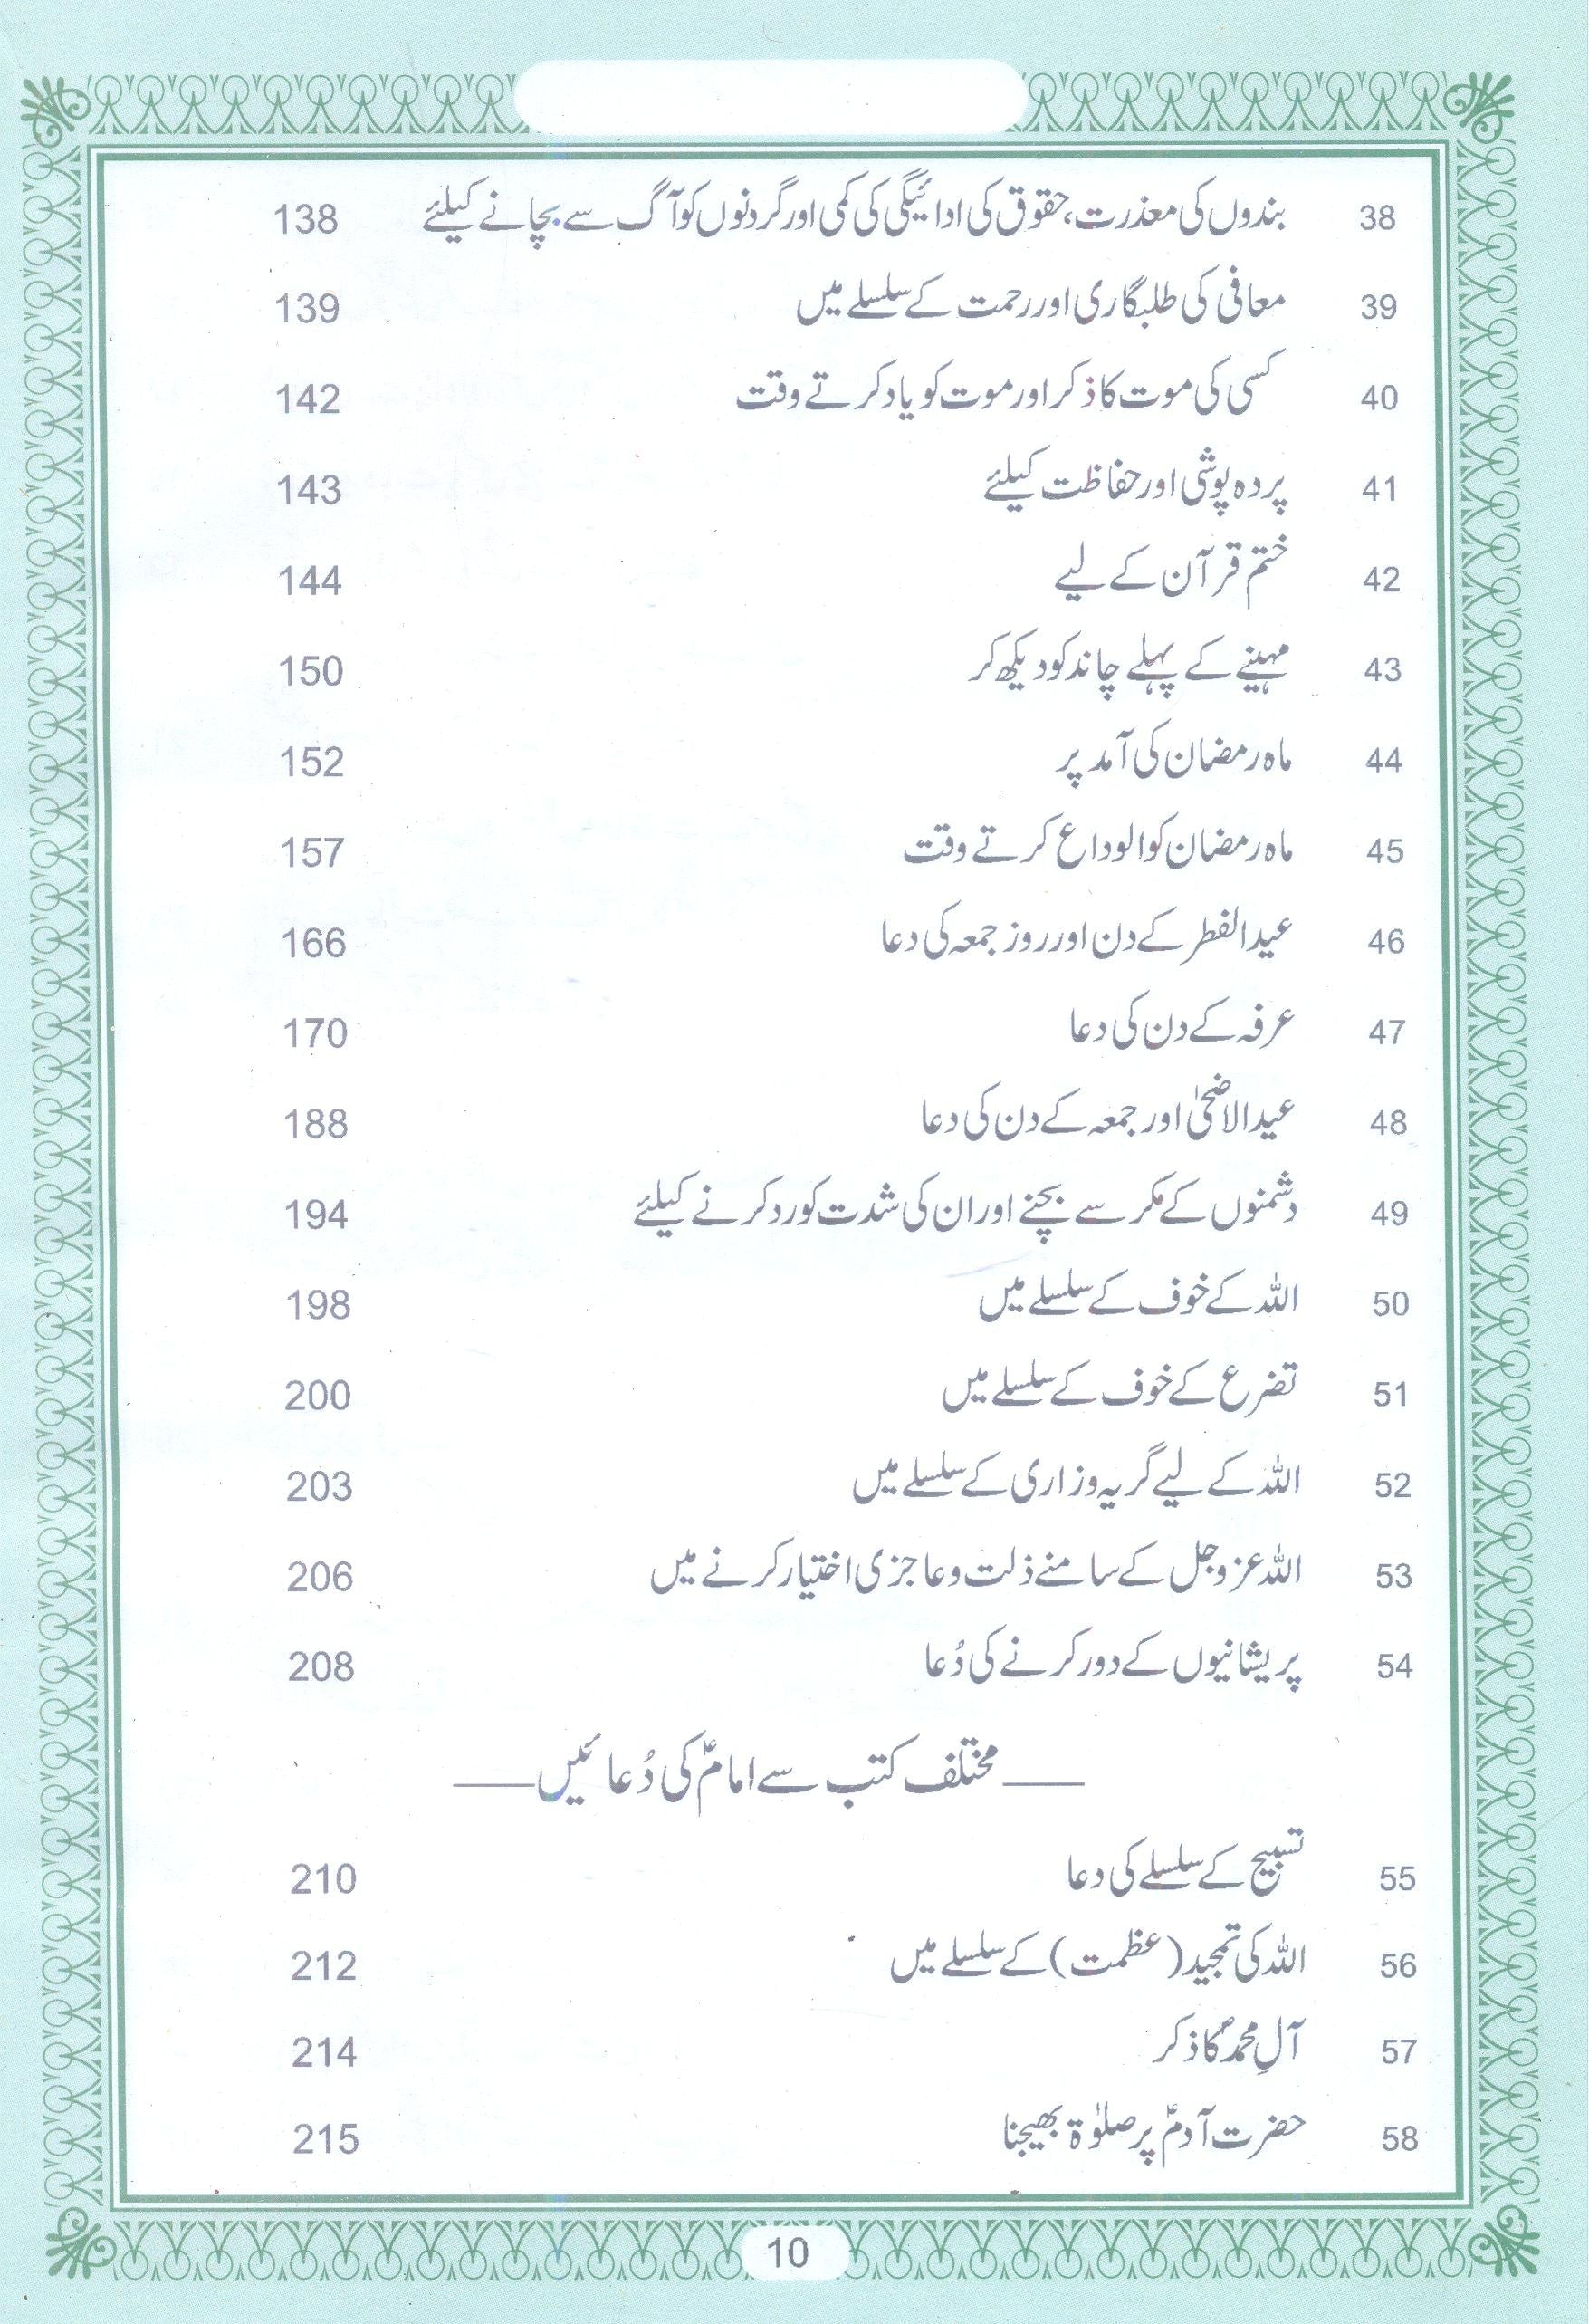 38 بندوں کی معذرت، حقوق کی ادائیگی کی کمی اور گردنوں کو آگ سے بچانے کیلئے 138
39 معافی کی طلبگاری اور رحمت کے سلسلے میں 139
40 کسی کی موت کا ذکر اور موت کو یاد کرتے وقت 142
41 پردہ پوشی اور حفاظت کیلئے 143
42 ختم قرآن کے لیے 144
43 مہینے کے پہلے چاند کو دیکھ کر 150
44 ماہ رمضان کی آمد پر 152
45 ماہ رمضان کو الوداع کرتے وقت 157
46 عیدالفطر کے دن اور روز جمعہ کی دعا 166
47 عرفہ کے دن کی دعا 170
48 عیدالاضحیٰ اور جمعہ کے دن کی دعا 188
49 دشمنوں کے مکر سے بچنے اور ان کی شدت کو رد کرنے کیلئے 194
50 اللہ کے خوف کے سلسلے میں 198
51 تضرع کے خوف کے سلسلے میں 200
52 اللہ کے لیے گریہ وزاری کے سلسلے میں 203
53 اللہ عزوجل کے سامنے ذلت وعاجزی اختیار کرنے میں 206
54 پریشانیوں کے دور کرنے کی دُعا 208
مختلف کتب سے امامؑ کی دُعائیں
55 تسبیح کے سلسلے کی دعا 210
56 اللہ کی تمجید (عظمت) کے سلسلے میں 212
57 آلِ محمدؐ کا ذکر 214
58 حضرت آدمؑ پر صلوٰۃ بھیجنا 215
10